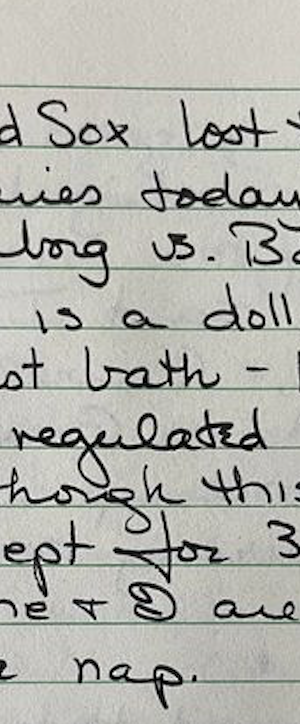 d Sox lost t
eries today
borg vs. Ba
is a doll
ot bath -
regulated
though this
ept for 3
me + D are
nap.